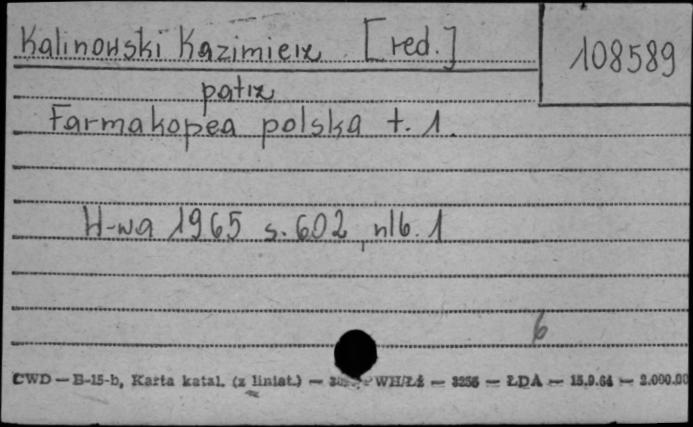 Kalinowski Kazimierz [red.]
108589
patrz
Farmakopea polska t. 1.
W-wa 1965 s. 602, nlb. 1
6
CWD — B-15-b, Karta katal. (z liniat.) — WH/Łź — 3256 — ŁDA — 15.9.64 — 2.000.00